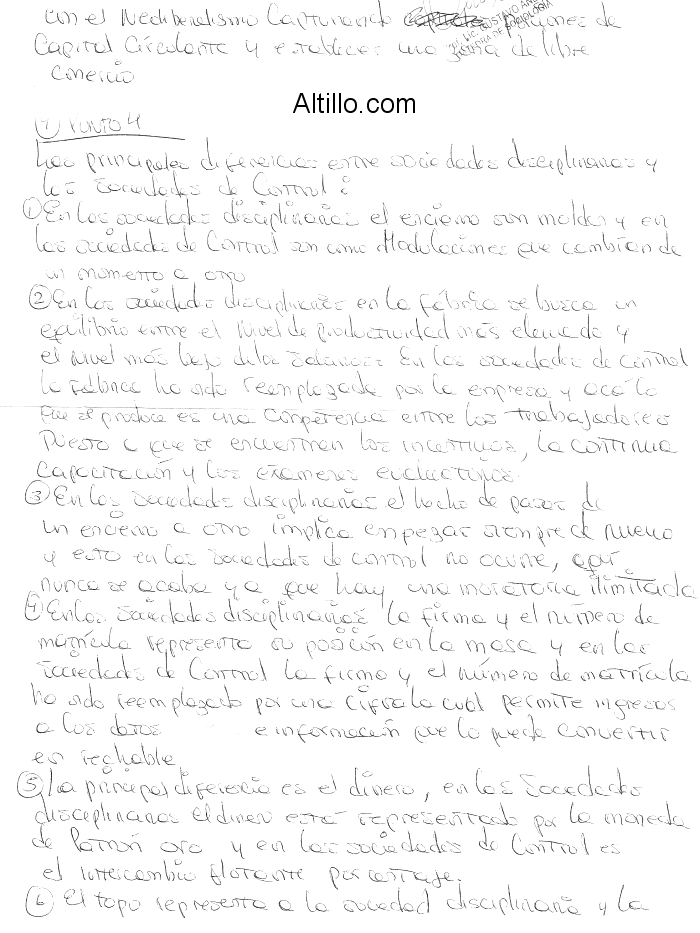 con el Neoliberalismo Capturando porciones de
Capital Circulante y establecer una zona de libre
comercio
Altillo.com
Punto 4
Las principales diferencias entre sociedades disciplinarias y
las sociedades de Control:
① En las sociedades disciplinarias el encierro son moldes y en
las sociedades de Control son como Modulaciones que cambian de
un momento a otro
② En las sociedades disciplinarias en la fábrica se busca un
equilibrio entre el Nivel de productividad más elevado y
el nivel más bajo de los salarios. En las sociedades de control
la fábrica ha sido reemplazada por la empresa y acá lo
que se produce es una competencia entre los trabajadores
puesto a que se encuentran los incentivos, la continua
capacitación y los exámenes evaluativos.
③ En las sociedades disciplinarias el hecho de pasar de
un encierro a otro implica empezar siempre de nuevo
y esto en las sociedades de control no ocurre, aquí
nunca se acaba ya que hay una moratoria ilimitada
④ En las sociedades disciplinarias la firma y el número de
matrícula representa su posición en la masa y en las
sociedades de Control la firma y el número de matrícula
ha sido reemplazado por una cifra la cual permite ingresos
a los datos e información que lo puede convertir
en
⑤ La principal diferencia es el dinero, en las sociedades
disciplinarias el dinero está representado por la moneda
de Patrón oro y en las sociedades de Control es
el intercambio flotante
⑥ El topo representa a la sociedad disciplinaria y la